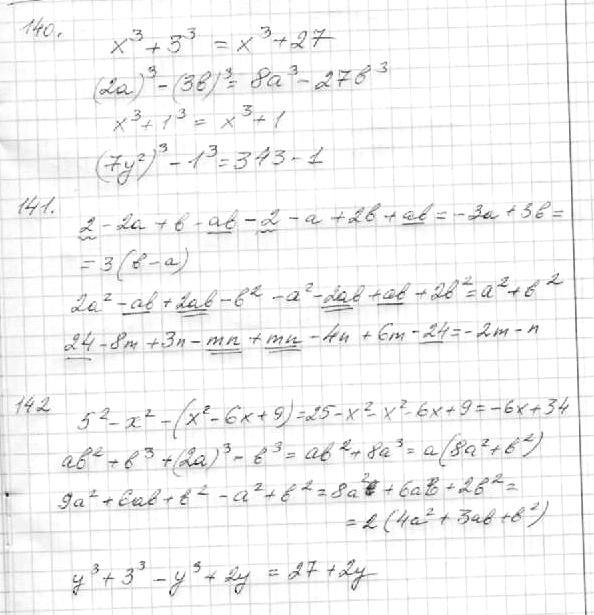 140.
x³ + 3³ = x³ + 27
(2a)³ - (3b)³ = 8a³ - 27b³
x³ + 1³ = x³ + 1
(7y²)³ - 1³ = 343 - 1
141.
2 - 2a + b - ab - 2 - a + 2b + ab = -3a + 3b =
= 3(b - a)
2a² - ab + 2ab - b² - a² - 2ab + ab + 2b² = a² + b²
24 - 8m + 3n - mn + mn - 4n + 6m - 24 = -2m - n
142
5² - x² - (x² - 6x + 9) = 25 - x² - x² - 6x + 9 = -6x + 34
ab² + b³ + (2a)³ - b³ = ab² + 8a³ = a(8a² + b²)
9a² + 6ab + b² - a² + b² = 8a² + 6ab + 2b² =
= 2(4a² + 3ab + b²)
y³ + 3³ - y³ + 2y = 27 + 2y